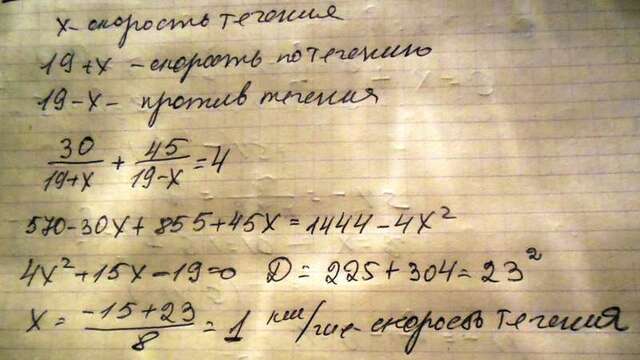 x - скорость течения
19+x - скорость по течению
19-x - против течения
30/(19+x) + 45/(19-x) = 4
570-30x+855+45x=1444-4x²
4x²+15x-19=0 D=225+304=23²
x = (-15+23)/8 = 1 км/час - скорость течения